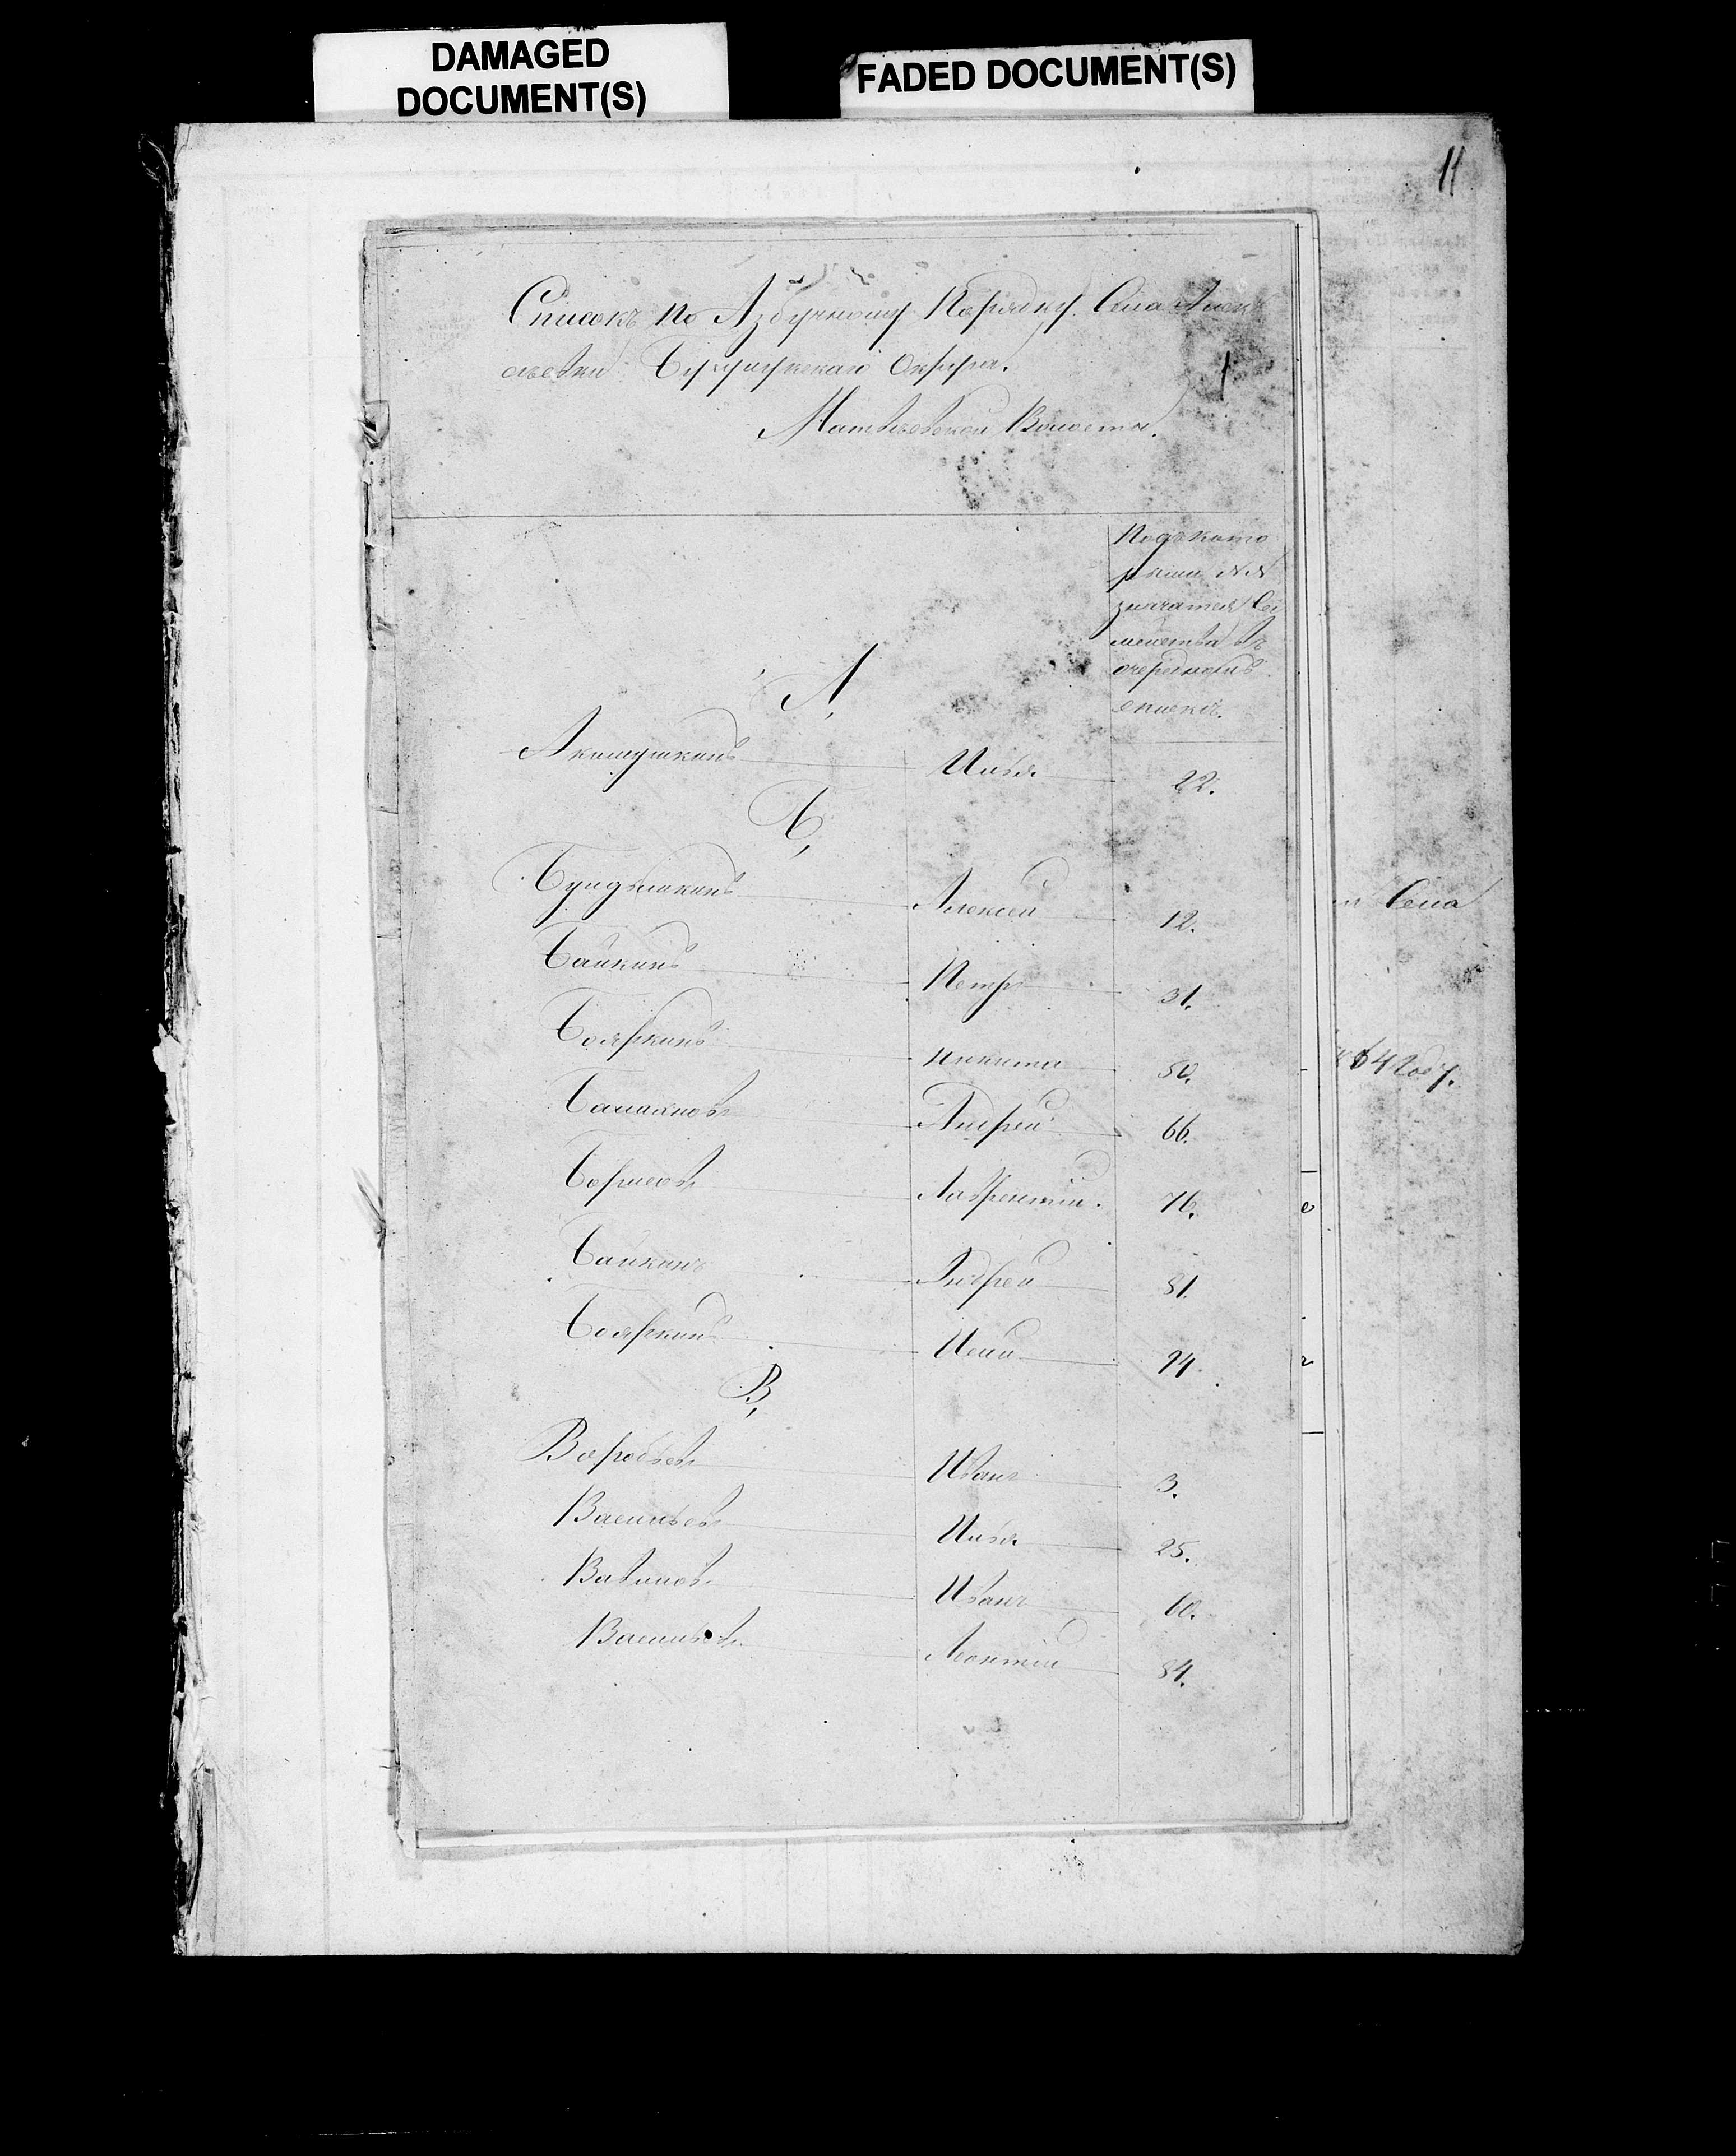 DAMAGED
DOCUMENT(S)
FADED DOCUMENT(S)
11
Списокъ по Азбучному Порядку. Села Алек
сѣевки Бузулукскаго Округа.
1
Матвѣевской Волости.
Подъ като
рыми №№
значатся Се
мейства въ
очередномъ
спискѣ.
А,
Акимушкинъ Илья 22.
Б,
Алексей 12.
Байкинъ Петръ 31.
Бояркинъ Никита 50.
Балакновъ Андрей 66.
Борисовъ Лаврентий. 76.
Байкинъ Андрей 81.
Бояркинъ 94.
В,
Воробьевъ Иванъ 3.
Васильевъ Илья 25.
Вавиловъ Иванъ 60.
Васильевъ Леонтий 84.
Села
64 году.